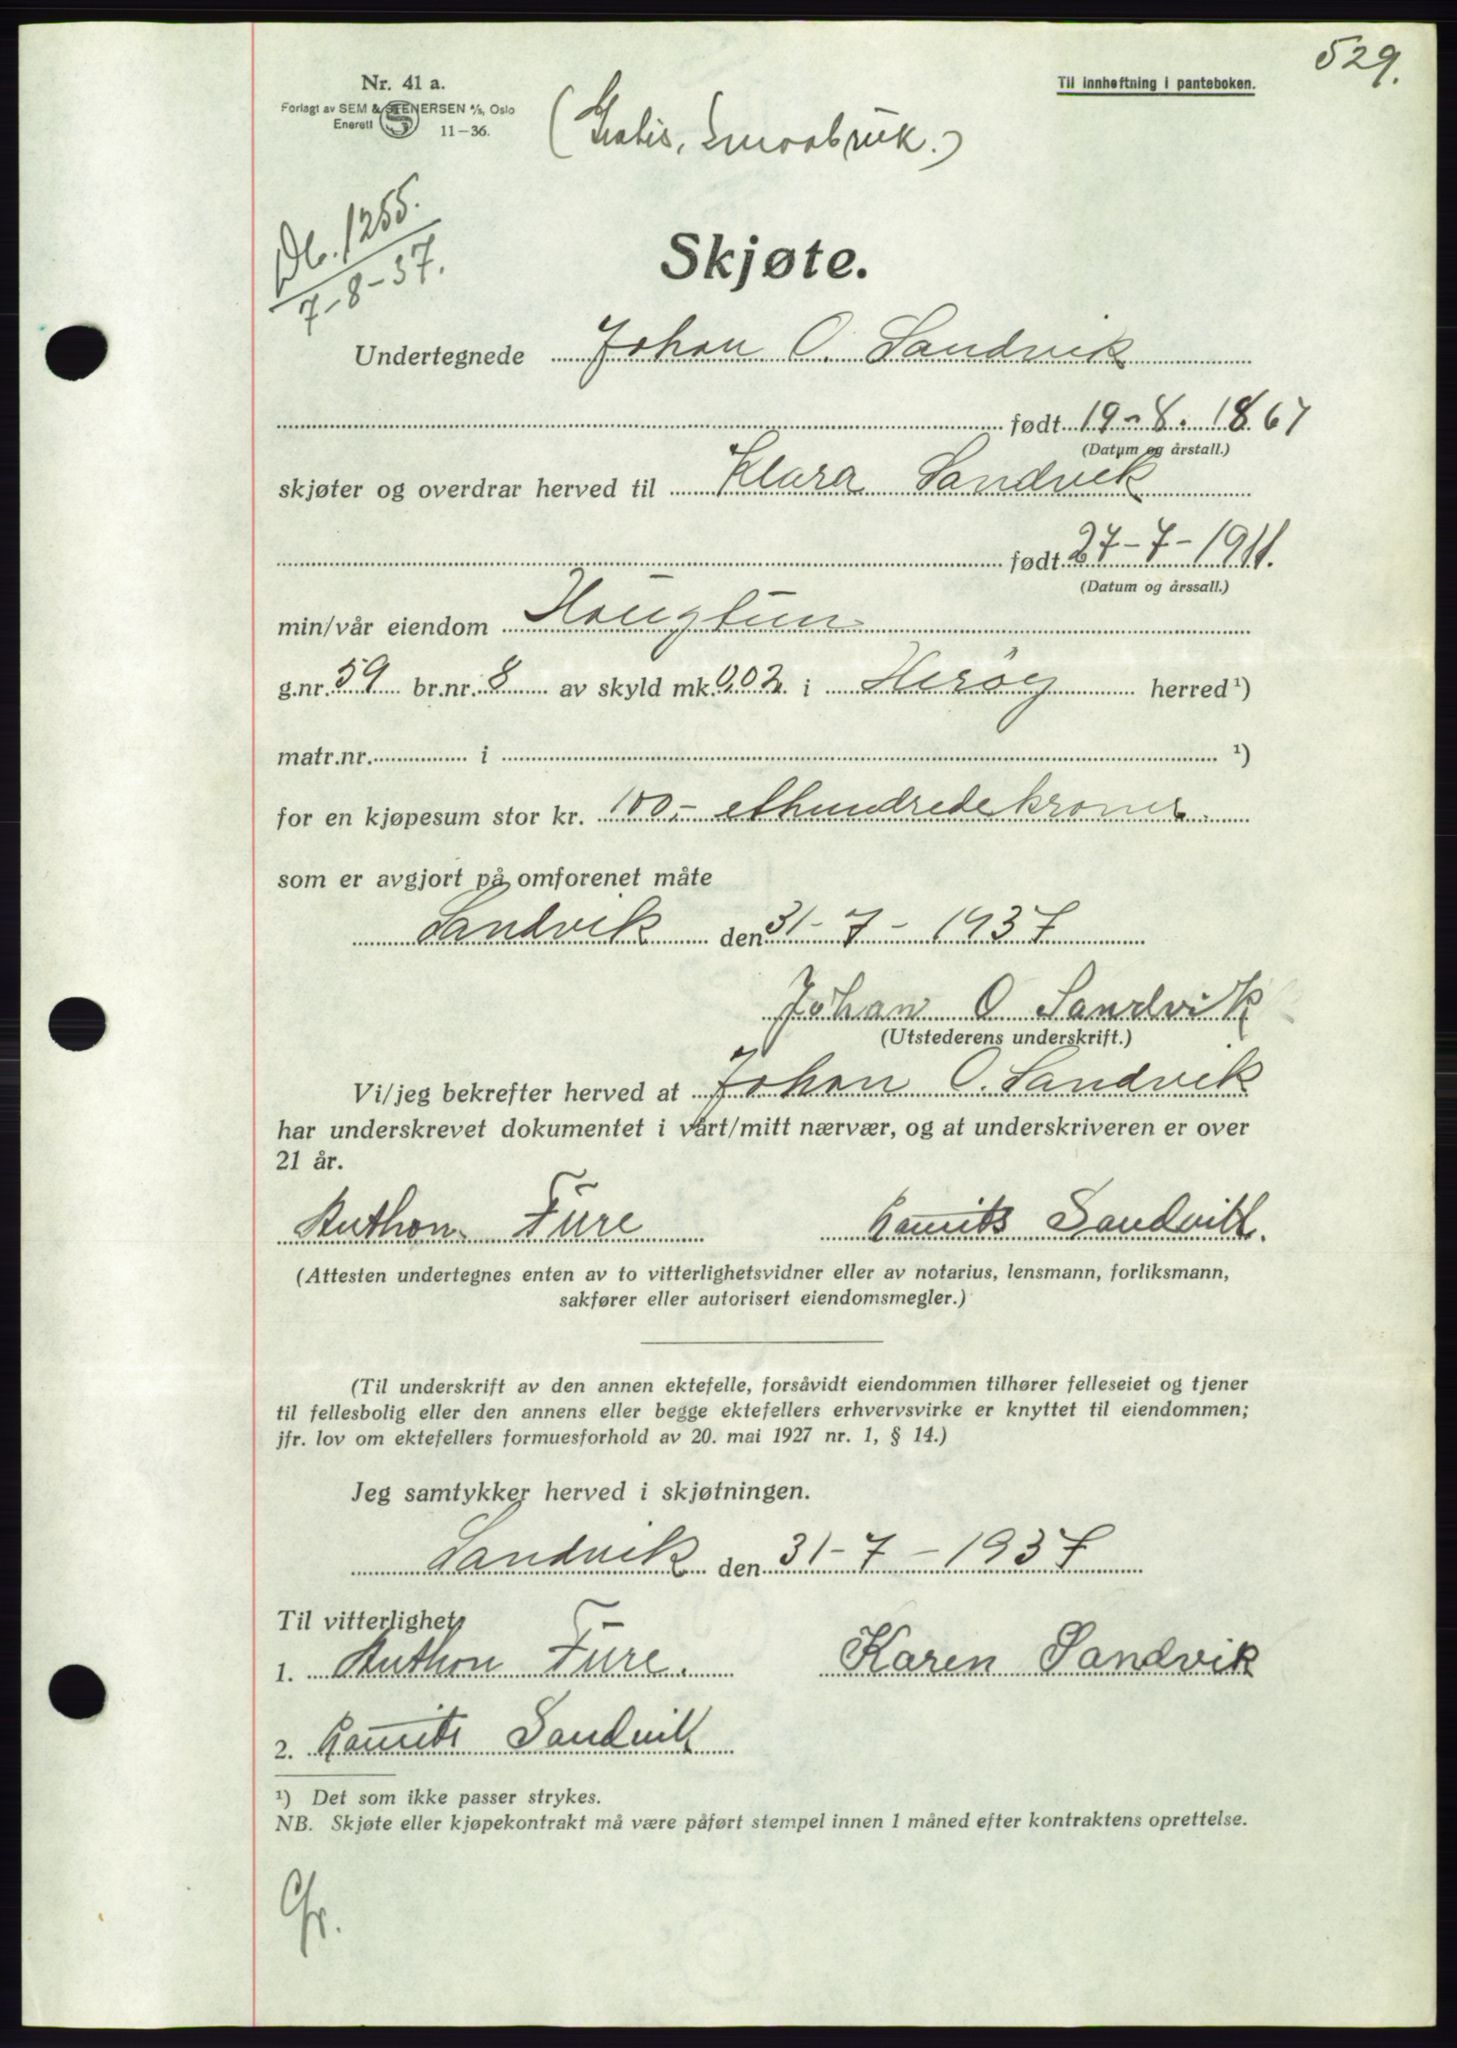 529.
Nr. 41 a.
Forlagt av SEM & STENERSEN A/S, Oslo
Enerett 11-36.
Til innheftning i panteboken.
(Gratis, Smaabruk.)
Db. 1255.
7-8-37.
Skjøte.
Undertegnede Johan O. Sandvik
født 19-8. 1867
(Datum og årstall.)
skjøter og overdrar herved til Klara Sandvik
født 27-7-1911.
(Datum og årssall.)
min/vår eiendom Haugtun
g.nr. 59 br.nr. 8 av skyld mk. 0,02 i Herøy herred ¹)
matr.nr. i ¹)
for en kjøpesum stor kr. 100,- ethundredekroner
som er avgjort på omforenet måte
Sandvik den 31-7-1937
Johan O Sandvik
(Utstederens underskrift.)
Vi/jeg bekrefter herved at Johan O. Sandvik
har underskrevet dokumentet i vårt/mitt nærvær, og at underskriveren er over
21 år.
Anthon Fure Sandvik.
(Attesten undertegnes enten av to vitterlighetsvidner eller av notarius, lensmann, forliksmann,
sakfører eller autorisert eiendomsmegler.)
(Til underskrift av den annen ektefelle, forsåvidt eiendommen tilhører felleseiet og tjener
til fellesbolig eller den annens eller begge ektefellers erhvervsvirke er knyttet til eiendommen;
jfr. lov om ektefellers formuesforhold av 20. mai 1927 nr. 1, § 14.)
Jeg samtykker herved i skjøtningen.
Sandvik den 31-7-1937
Til vitterlighet
1. Anthon Fure. Karen Sandvik
2. Sandvik
¹) Det som ikke passer strykes.
NB. Skjøte eller kjøpekontrakt må være påført stempel innen 1 måned efter kontraktens oprettelse.